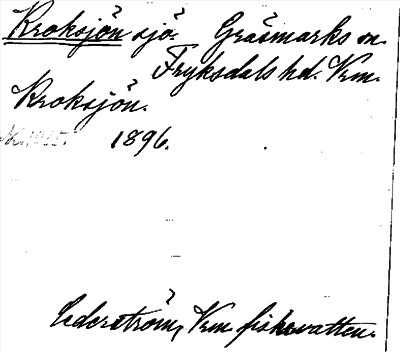 Kroksjön sjö. Gräsmarks sn.
Fryksdals hd. Vrm.
Kroksjön.
1896.
Cederström, Vrm. fiskevatten.